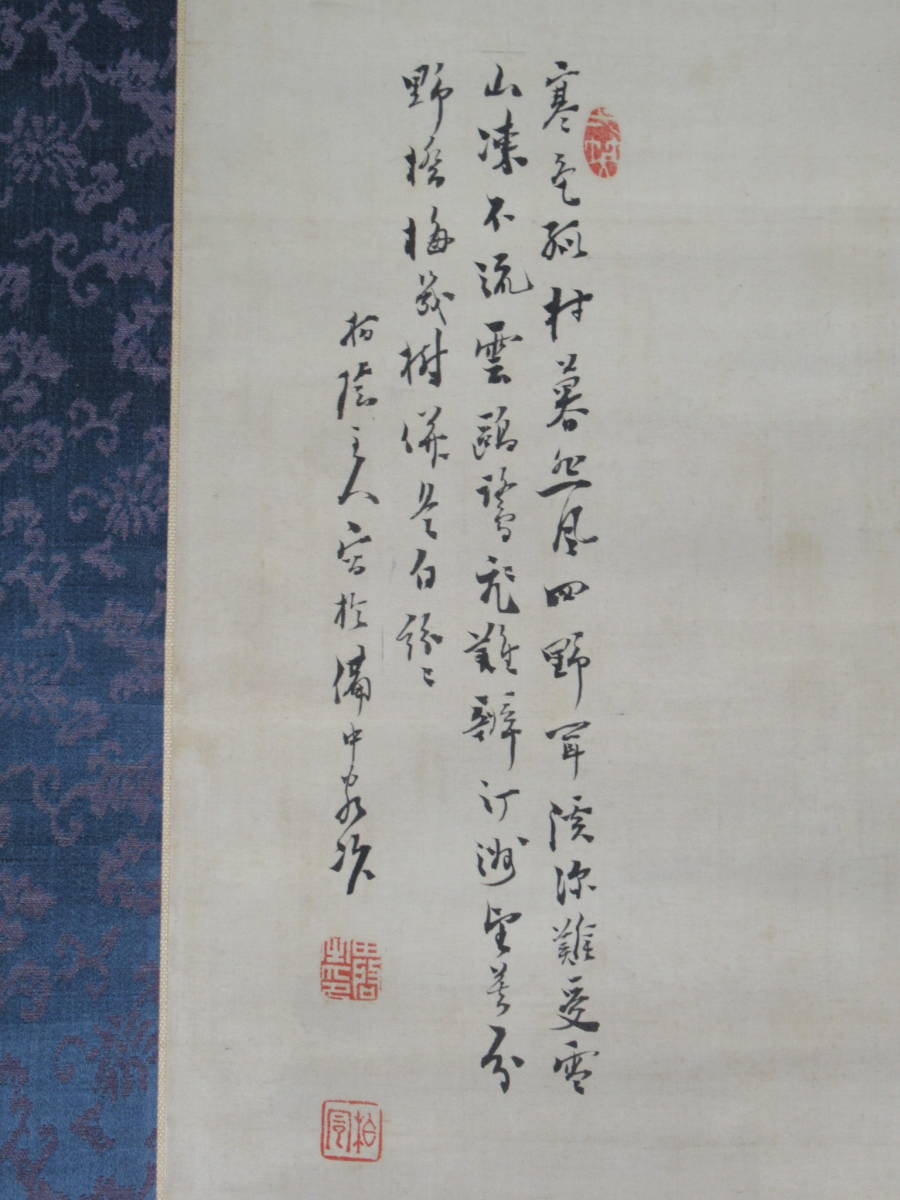 寒色孤村暮悲風四野聞溪深難受雪
山凍不流雲鷗鷺飛難辨汀洲望莫分
野橋梅幾樹併是白紛々
柏陰主人寫於備中客次